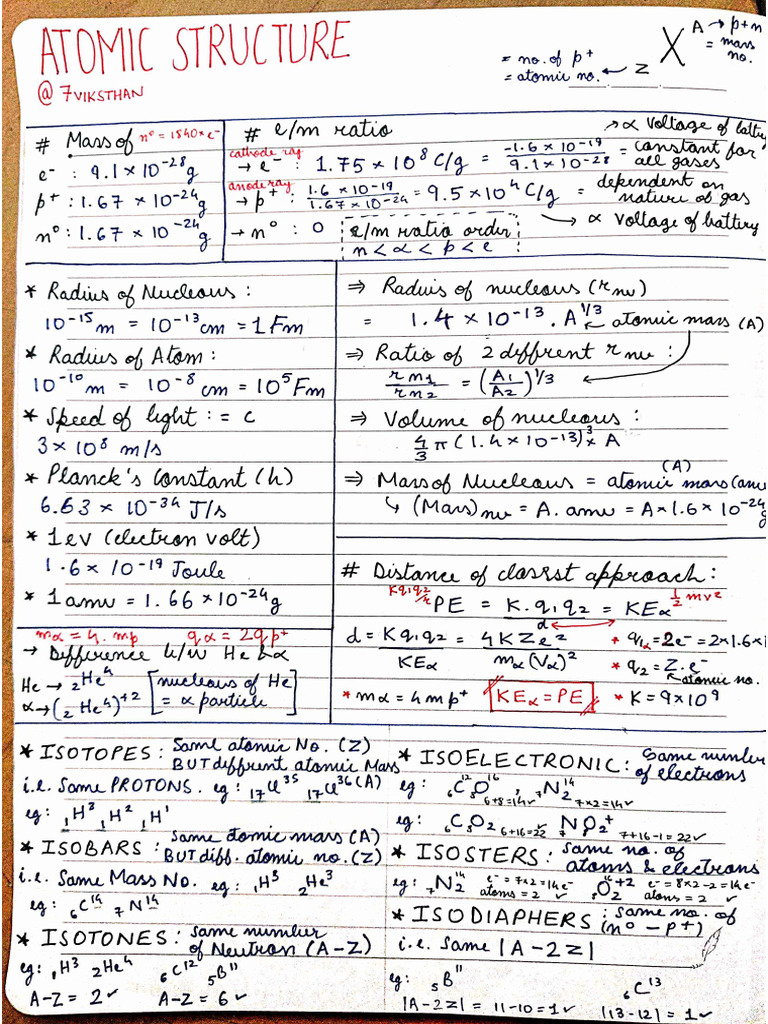 ATOMIC STRUCTURE
@ 7VIKSTHAN
= no. of p⁺
= atomic no. ← Z
X
A → p+n
= mass no.
# Mass of n⁰ = 1840×e⁻
e⁻ : 9.1×10⁻²⁸g
p⁺ : 1.67 ×10⁻²⁴g
n⁰ : 1.67 ×10⁻²⁴g
# e/m ratio
→ ∝ Voltage of battery
cathode ray
→ e⁻ : 1.75 × 10⁸ C/g = -1.6 × 10⁻¹⁹ / 9.1×10⁻²⁸ = constant for all gases
anode ray
→ p⁺ : 1.6 × 10⁻¹⁹ / 1.67 × 10⁻²⁴ = 9.5×10⁴ C/g = dependent on nature of gas
→ ∝ voltage of battery
→ n⁰ : 0
e/m ratio order
n < α < p < e
* Radius of Nucleous :
10⁻¹⁵m = 10⁻¹³cm = 1Fm
* Radius of Atom :
10⁻¹⁰m = 10⁻⁸cm = 10⁵Fm
* Speed of light : = c
3×10⁸ m/s
* Planck's constant (h)
6.63 × 10⁻³⁴ J/s
* 1 ev (electron volt)
1.6× 10⁻¹⁹ Joule
* 1 amu = 1.66 ×10⁻²⁴g
⇒ Raduis of nucleous (r nu)
= 1.4 × 10⁻¹³ . A^1/3 ← atomic mass (A)
⇒ Ratio of 2 diffrent r nu :
r n₁ / r n₂ = (A₁/A₂)^1/3
⇒ Volume of nucleous :
4/3 π (1.4×10⁻¹³)³ × A
⇒ Mass of Nucleous = atomic mass (amu
(A)
↳ (Mass)nu = A. amu = A×1.6×10⁻²⁴g
mα = 4. mp qα = 2qp⁺
→ Difference b/w He & α
He → ₂He⁴
α → (₂He⁴)⁺²
[nucleous of He
= α particle]
# Distance of closest approach :
Kq₁q₂/r PE = K.q₁q₂/d = KEα ½ mv²
d = Kq₁q₂/KEα = 4KZe²/mα(Vα)²
* q₁α = 2e⁻ = 2×1.6×1
* q₂ = Z.e⁻
← atomic no.
* mα = 4mp⁺
KEα = PE
* K = 9×10⁹
* ISOTOPES : Same atomic No. (Z)
BUT diffrent atomic Mass
i.e. Same PROTONS. eg : ₁₇Cl³⁵ ₁₇Cl³⁶ (A)
eg : ₁H³ ₁H² ₁H¹
* ISOBARS : Same atomic mass (A)
BUT diff. atomic no. (Z)
i.e. Same Mass No. eg : ₁H³ ₂He³
eg : ₆C¹⁴ ₇N¹⁴
* ISOTONES : same number
of Neutron (A-Z)
eg : ₁H³ ₂He⁴ ₆C¹² ₅B¹¹
A-Z = 2✓ A-Z = 6✓
* ISOELECTRONIC : Same number
of electrons
eg : ₆C¹²₈O¹⁶ , ₇N₂¹⁴
6+8=14✓ 7×2=14✓
eg : ₆C₈O₂ 6+16=22 ✓ ₇N₈O₂⁺ 7+16-1=22✓
* ISOSTERS : Same no. of
atoms & electrons
eg : ₇N₂¹⁴ e⁻ = 7×2=14e⁻ atoms = 2 ✓ ₈O₂¹⁶⁺² e⁻ = 8×2-2=14e⁻ atoms = 2 ✓
* ISODIAPHERS : same no. of
(n⁰ - p⁺)
i.e. same |A-2Z|
eg : ₅B¹¹ ₆C¹³
|A-2Z| = 11-10=1✓ |13-12| = 1✓